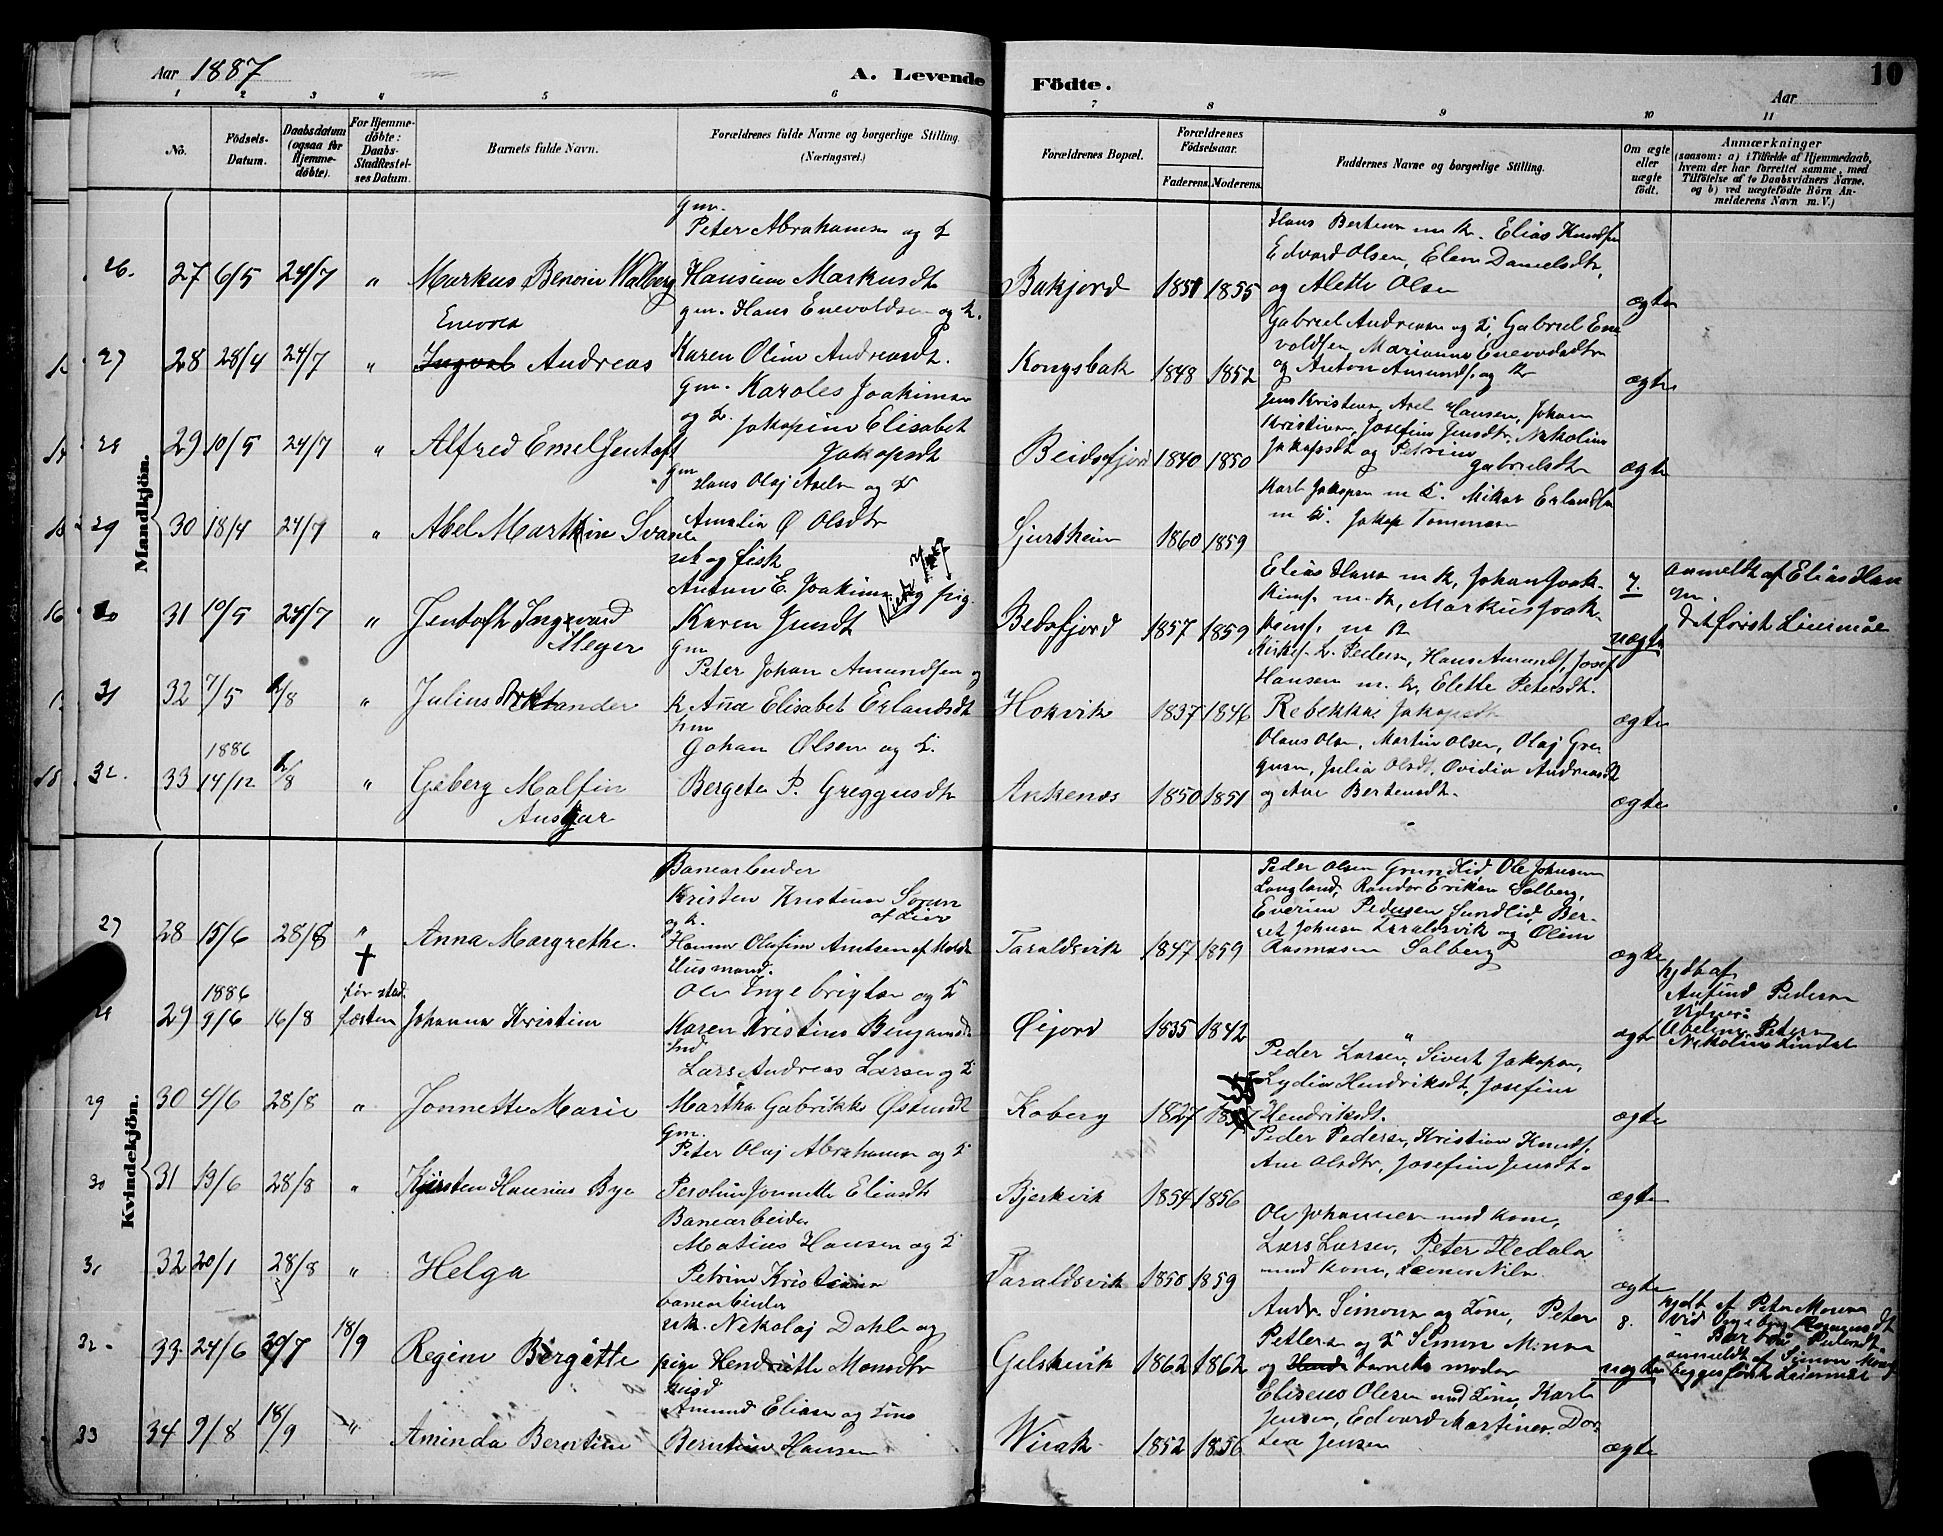 Aar 1887
A. Levende Födte.
10
Aar
1 2 3 4 5 6 7 8 9 10 11
Nô.
Födsels-Datum.
Daabsdatum (ogsaa for Hjemme-döbte).
For Hjemme-döbte: Daabs-Stadfæstel-ses Datum.
Barnets fulde Navn.
Forældrenes fulde Navne og borgerlige Stilling. (Næringsvei.)
Forældrenes Bopæl.
Forældrenes Födselsaar.
Faderens. Moderens.
Faddernes Navne og borgerlige Stilling.
Om ægte eller uægte födt.
Anmærkninger
(saasom: a) i Tilfælde af Hjemmedaab, hvem der har forrettet samme, med Tilföielse af to Daabsvidners Navne, og b) ved uægtefödte Börn Anmelderens Navn m. V.)
Mandkjön.
26. 27 6/5 24/7 " Markus Benoni Walberg
gm.
Peter Abrahamsen og K
Hansine Markusdt
Bakjord 1851 1855
Hans Bertsen m K. Elias Knudsen
Edvard Olsen, Elen Danielsdtr,
og Alette Olsen
ægte
27 28 28/4 24/7 " Enevold
Ingval Andreas
gm. Hans Enevoldsen og K.
Karen Oline Andreasdt.
Kongsbak 1848 1852
Gabriel Andreasen og K, Gabriel Ene
voldsen Marianne Enevoldsdtr
og Anton Amunds. og K
ægte
28 29 10/5 24/7 " Alfred Emel Jentoft
gm. Karoles Joakimsen
og K. Jakopine Elisabet
Jakopsdt
Beidsfjord 1840 1850
Jens Kristensen, Axel Hansen, Johan
Kristiansen, Josefine Jensdtr, Nikoline
Jakopsdt og Petrine
Gabrielsdt
ægte
29 30 18/4 24/7 " Abel Martin Svane
gm
Hans Olaj Axelsen og K
Amalia Ø Olsdtr
Sjursheim 1860 1859
Karl Jakopsen m K. Mikar Erlandsen
m K. Jakop Tommasen
16 30 31 10/5 24/7 " Jentoft Ingvard
Meyer
uk og fisk
Anton E. Joakimsen og pig.
Karen Jensdt
Beisfjord 1857 1859
Elias Hansen m K, Johan Joak-
kims. m. K, Markus Joak-
kims. m K
7. uægte
anmeldt af Elias Han
sen.
det først Leiermål
31 32 7/5 2/8 " Julius Arkander
gm
Peter Johan Amundsen og
K Ane Elisabet Erlandsdt
Hokvik 1837 1846
Kirkes. L. Pedersen, Hans Amunds, Josef
Hansen m. K, Elette Petersdt.
Rebekka Jakopsdt
ægte
32. 33 1886
14/12 2/8 " Gjeberg Malfin
Ansgar
gm
Johan Olsen og K.
Bergete P. Greggusdt
Ankenæs 1850 1851
Olaus Olsen, Martin Olsen, Olaj Gre
gusen, Julia Olsdt, Ovidia Andreasdt
og Ane Bertensdt.
ægte
Kvindekjön.
27 28 15/6 28/8 " Anna Margrethe.
Banearbeider
Kristen Kristensen Sörum
og K. af Lier
Hanna Olufine Amtsen af Molde
Taraldsvik 1847 1859
Peder Olsen Grundlid, Ole Johnsen
Langland, Randor Eriksen Solberg,
Everine Pedersen Sundlid, Ber-
ret Johnsen Taraldsvik og Oline
Rasmusen Solberg
ægte
28 29 1886
9/6 16/8 † før stad
fæsten Johanna Kristine
Husmand.
Ole Ingebrigtsen og K
Karen Kristine Benjaminsdt
Øijord 1835 1842 "
ægte
hjdt af
Anfind Pedersen
Vidner:
Abelone Petersen
Nikoline Lindst
29 30 4/6 28/8 " Jonnette Marie
Ind
Lars Andreas Larsen og K
Martha Gabrikke Østensdt
Koberg 1827
Peder Larsen, Sivert Jakopsen,
Lydia Hendriksdt, Josefine
Hendriksdt.
ægte
30 31 19/6 28/8 " Kjersten Hansine Bye
gm.
Peter Olaj Abrahamsen og K
Peroline Jonnette Eliasdt
Bjerkvik 1854 1856
Peder Pedersen, Kristian Knuds,
Ane Olsdtr, Josefine Jensdt.
ægte
31 32 20/1 28/8 " Helga
Banearbeider
Matius Hansen og K
Petrine Kristiansen
Taraldsvik 1850 1859
Ole Johannesen med kone,
Lars Larsen, Peter Hedalen
med kone, Leonor Nilsen
ægte
32 33 24/6 29/7 18/9 Regine Birgitte
banearbeider
uk. Nikolaj Dahle og
pige Hendriette Monsdtr
Gjelskevik 1862 1862
Andr. Simonsen og Kone, Peter
Petersen og K Simon Monsen
og Hend barnets moder
8. uægte
hjdt af Peter Monsen
Vid Ingeborg Rasmusdt
Barbro Pedersdt
anmeldt af Simon Mons
begges første Leiermål
33 34 9/8 18/9 " Aminda Berntine
Amund Eliasen og Kone
Berntine Hansen
Wirak 1852 1856
Eliseus Olesen med Kone, Karl
Jensen, Edvard Martinsen, Dor-
tea Jensen
ægte